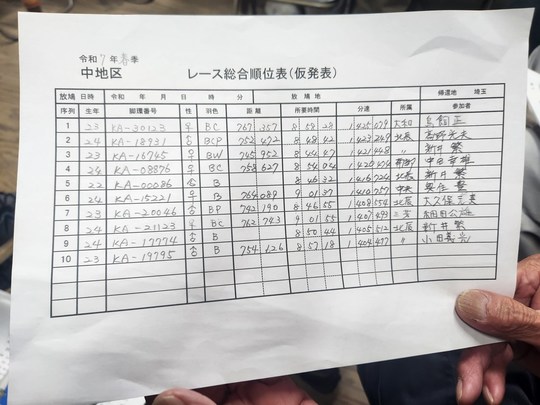 令和7年春季
中地区 レース総合順位表(仮発表)
放鳩 日時 令和 年 月 日 時 分 放鳩地 帰還地 埼玉
序列 生年 脚環番号 性 羽色 距離 所要時間 分速 所属 参加者
1 23 KA-30123 ♀ BC 767 357 8 58 28 1 425 079
2 24 KA-18931 ♂ BCP 752 472 8 48 42 1 423 249 北辰
3 23 KA-16745 ♀ BW 745 952 8 44 47 1 421 448 〃 新井 繁
4 24 KA-08876 ♀ BC 758 627 8 54 04 1 420
5 22 KA-00086 ♂ B 8 46 32 1 416 北辰 新井 繁
6 24 KA-15221 ♀ B 764 089 9 01 37 1 410 757 中央
7 23 KA-20046 ♂ BP 742 190 8 46 55 1 408 554 北辰
8 24 KA-21123 ♀ BC 762 743 9 01 55 1 407 493
9 24 KA-17774 ♂ B 8 50 44 1 405 512 北辰 新井 繁
10 23 KA-19795 ♂ B 754 126 8 57 18 1 404 477 〃